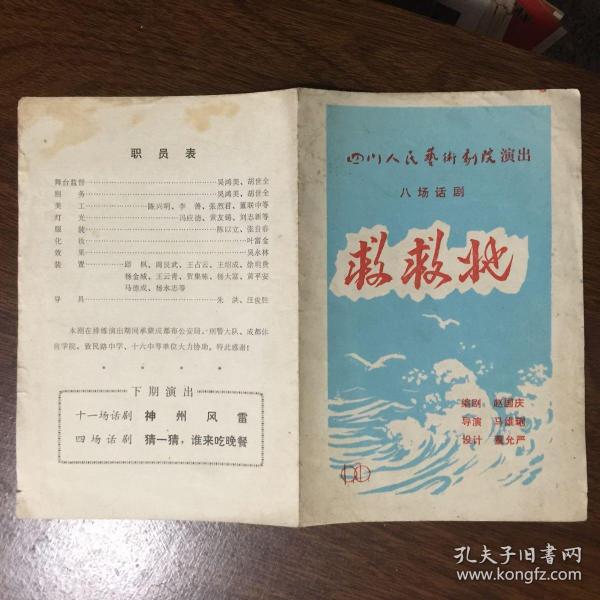 职员表
舞台监督 吴鸿美、胡世全
剧务 吴鸿美、胡世全
美工 陈兴明、李善、张烈君、董联中等
灯光 冯应德、黄友锡、刘志新等
服装 陈以立、张自春
化妆 叶富金
效果 吴永林
装置 邱枫、周民武、王占云、王绍成、徐明贵
杨金城、王云青、贺集栋、杨大富、黄平安
马德成、杨永志等
导具 朱洪、汪俊胜
本剧在排练演出期间承蒙成都市公安局、刑警大队、成都体
育学院、致民路中学、十六中等单位大力协助，特此感谢！
下期演出
十一场话剧 神州风雷
四场话剧 猜一猜，谁来吃晚餐
四川人民艺術剧院演出
八场话剧
救救她
编剧 赵国庆
导演 马雄翔
设计 允严
孔夫子旧书网
www.kongfz.com